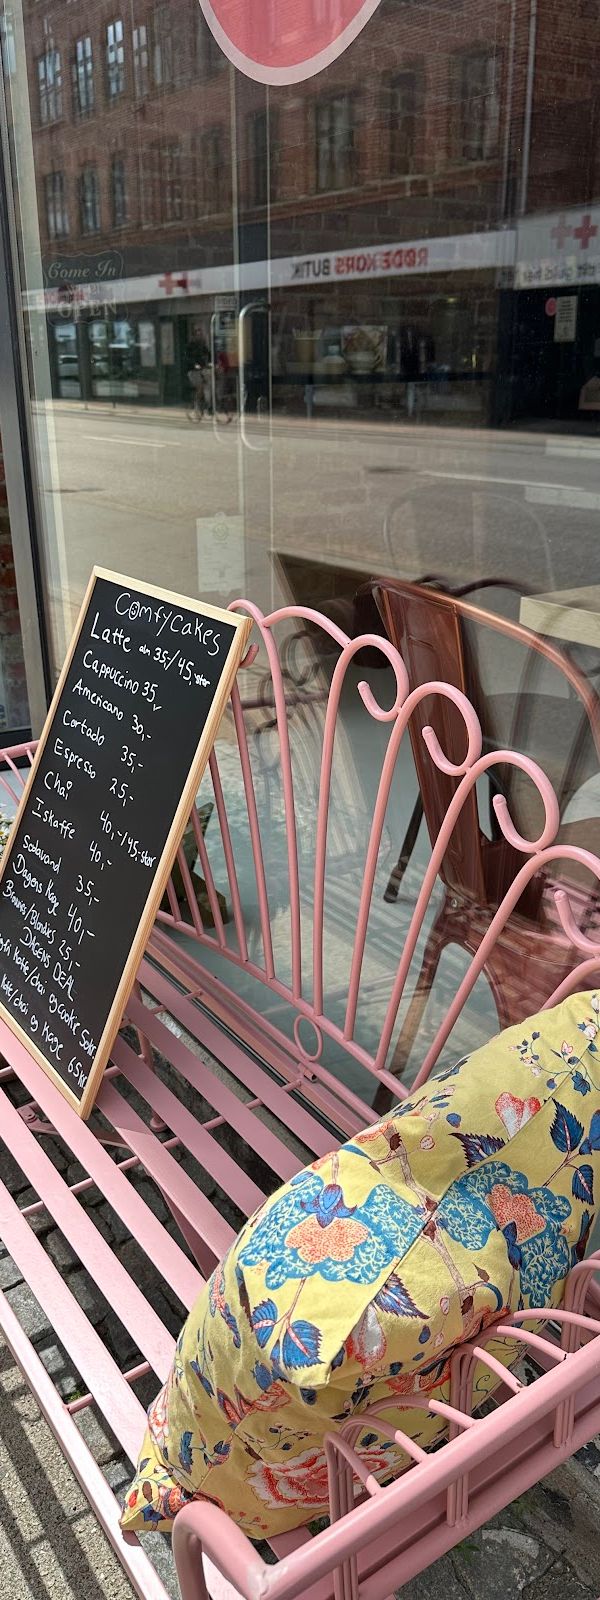 Come In
OPEN
RØDE KORS BUTIK
Comfycakes
Latte alm 35,-/45,-stor
Cappuccino 35,-
Americano 30,-
Cortado 35,-
Espresso 25,-
Chai 40,-/45,-stor
Iskaffe 40,-
Sodavand 35,-
Dagens Kage 40,-
Brownies/Blondies 25,-
DAGENS DEAL
kaffe/chai og cookie 50kr
kaffe/chai og kage 65kr